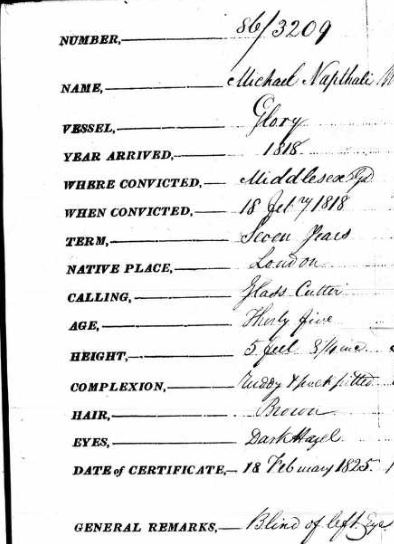 NUMBER, 86/3209
NAME, Michael Napthali
VESSEL, Glory
YEAR ARRIVED, 1818
WHERE CONVICTED, Middlesex
WHEN CONVICTED, 18 Feby 1818
TERM, Seven Years
NATIVE PLACE, London
CALLING, Glass Cutter
AGE, Thirty five
HEIGHT, 5 feet
COMPLEXION, Ruddy & pock pitted
HAIR, Brown
EYES, Dark Hazel
DATE of CERTIFICATE, 18 February 1825.
GENERAL REMARKS, Blind of left Eye